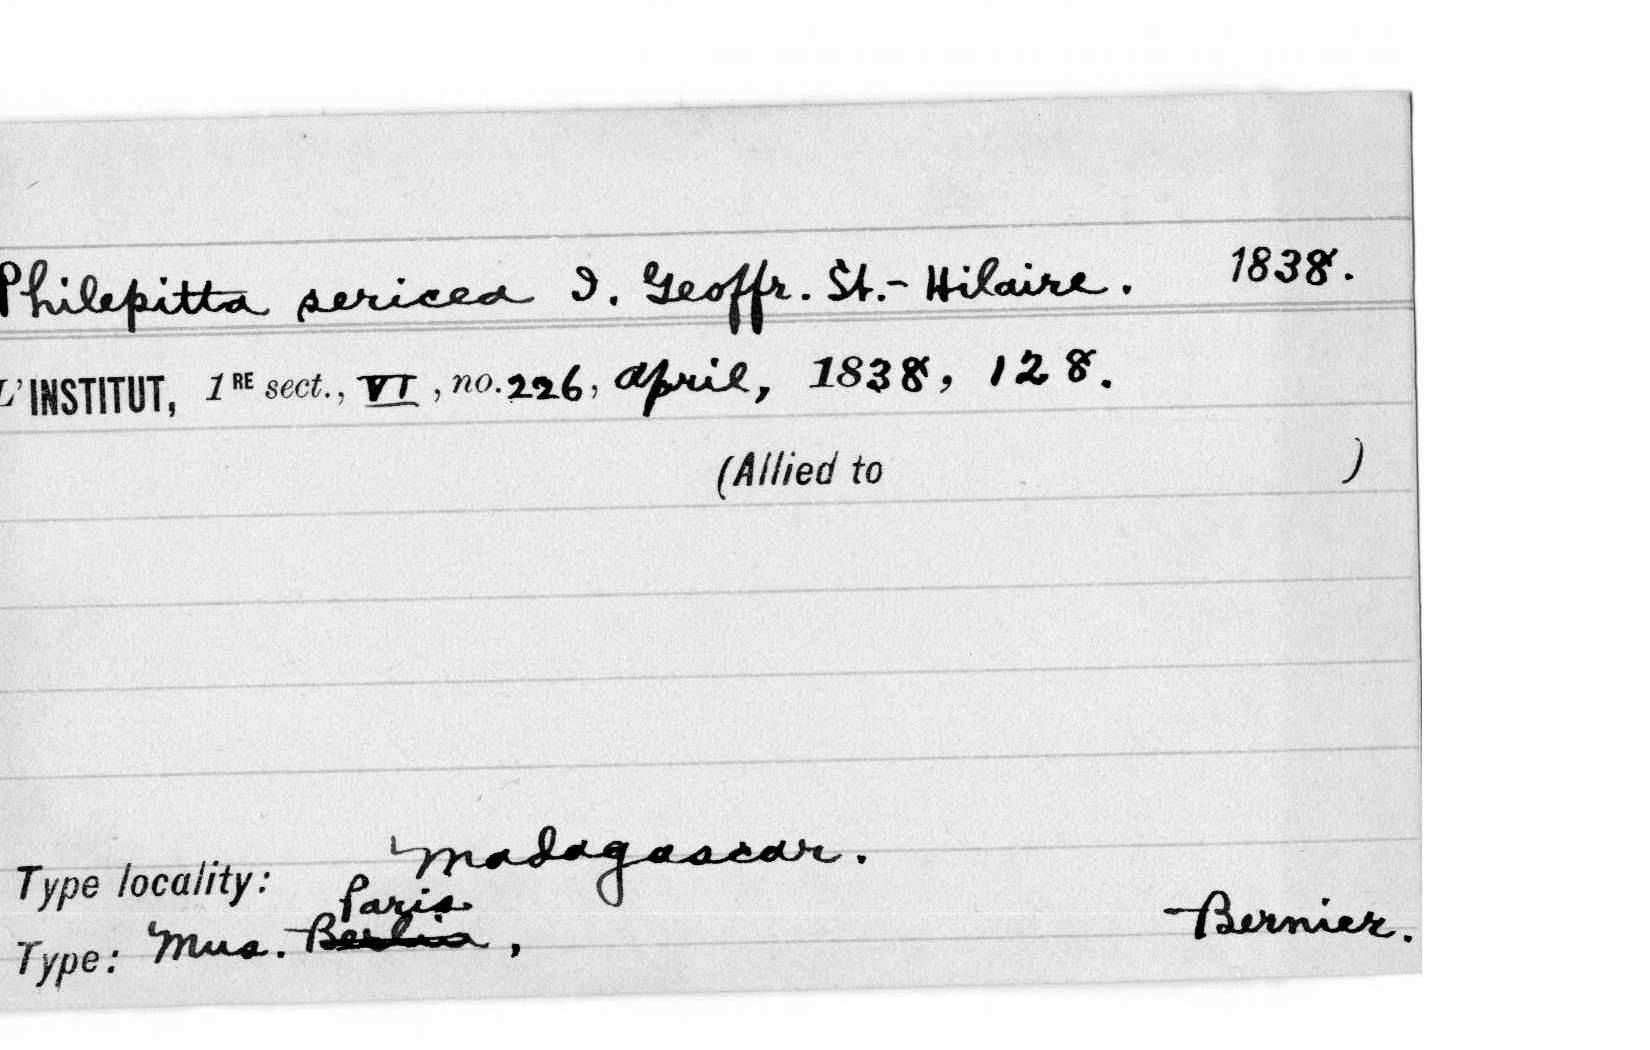 Philepitta sericea I. Geoffr. St.-Hilaire. 1838.
L'INSTITUT, 1RE sect., VI, no. 226, April, 1838, 128.
(Allied to )
Type locality: Madagascar.
Paris
Type: Mus. Berlin, Bernier.